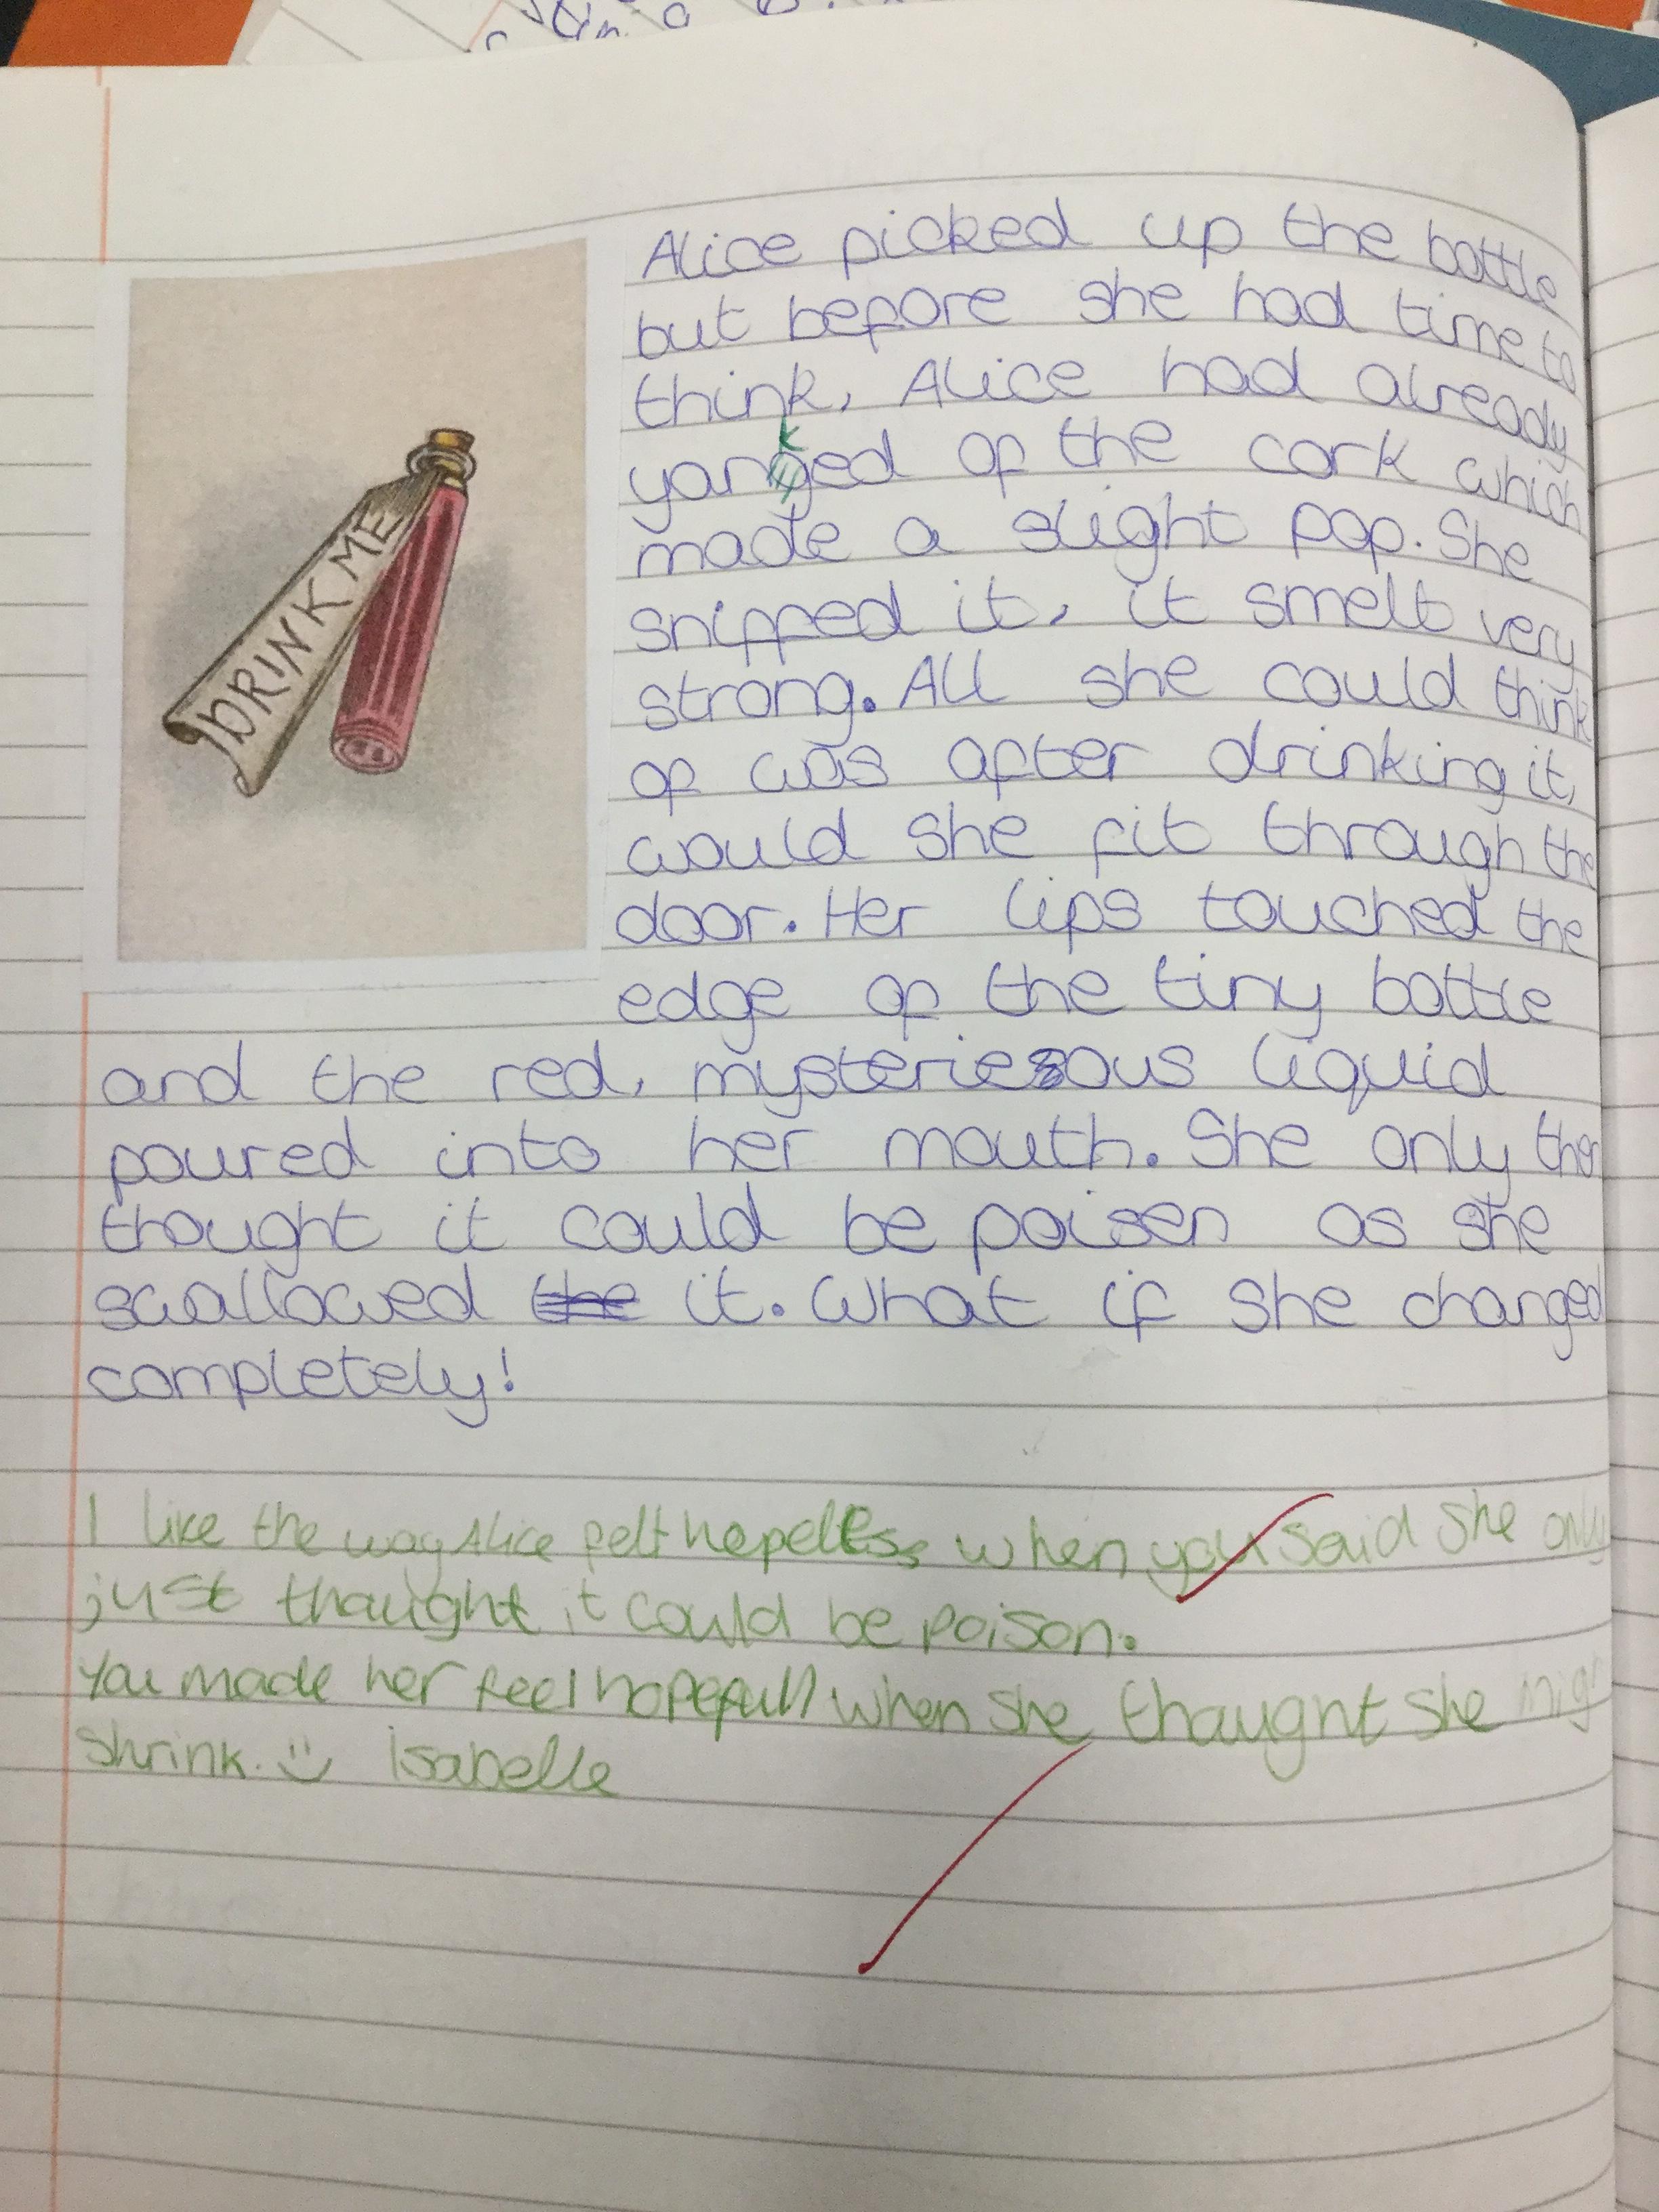 DRINK ME
Alice picked up the bottle
but before she had time to
think, Alice had already
k
yanged of the cork which
made a slight pop. She
sniffed it, it smelt very
strong. All she could think
of was after drinking it,
would she fit through the
door. Her lips touched the
edge of the tiny bottle
and the red, mysteriesous liquid
poured into her mouth. She only thor
thought it could be poisen as she
swallowed the it. What if she changed
completely!
I like the way Alice felt hopeless when you said she only
just thought it could be poison.
You made her feel hopefull when she thought she
shrink. Isabelle